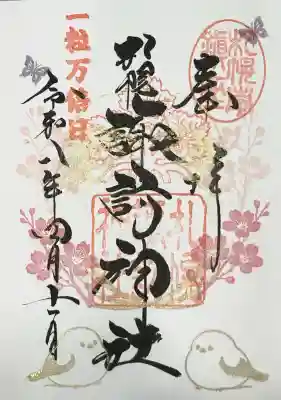 奉拝
札幌諏訪神社
一粒万倍日
令和八年四月十一日